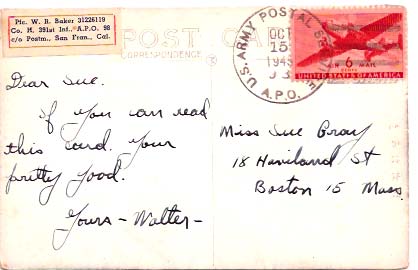 Pfc. W. B. Baker 31226119
Co. M. 391st Inf., A.P.O. 98
c/o Postm., San Fran., Cal.
POST CARD
CORRESPONDENCE
U.S. ARMY POSTAL SERVICE
OCT
15
1945
A.P.O.
AIR 6 MAIL
CENTS
UNITED STATES OF AMERICA
Dear Sue.
If you can read
this card your
pretty good.
Yours - Walter -
Miss Sue Gray
18 Haviland St
Boston 15 Mass.